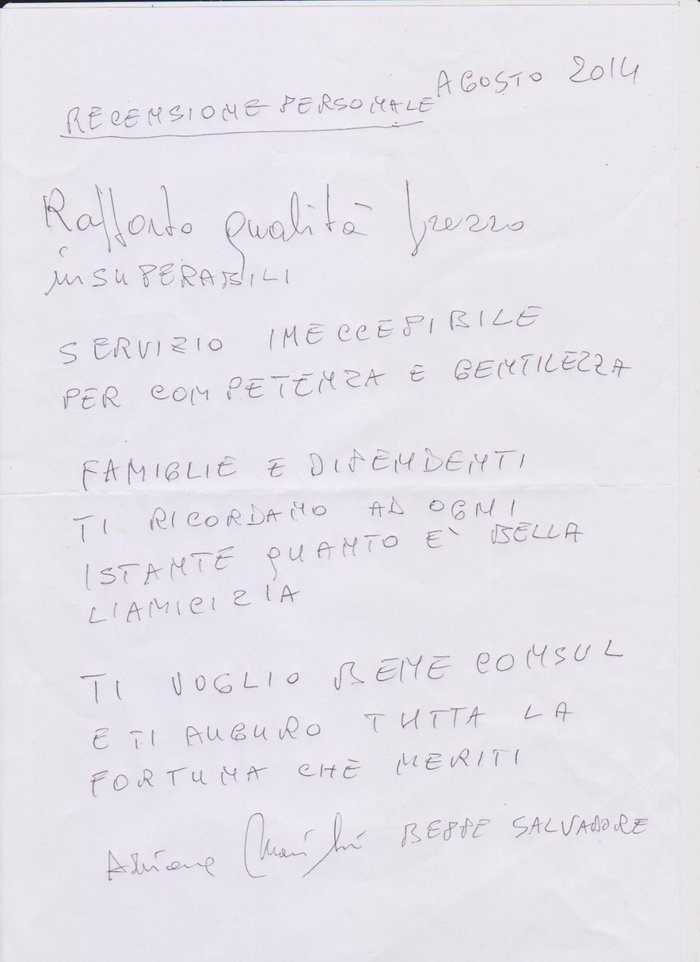 AGOSTO 2014
RECENSIONE PERSONALE
Rapporto qualità prezzo
inSUPERABILI
SERVIZIO INECCEPIBILE
PER COMPETENZA E GENTILEZZA
FAMIGLIE E DIPENDENTI
TI RICORDANO AD OGNI
ISTANTE QUANTO E' BELLA
L'AMICIZIA
TI VOGLIO BENE CONSUL
E TI AUGURO TUTTA LA
FORTUNA CHE MERITI
BEPPE SALVADORE